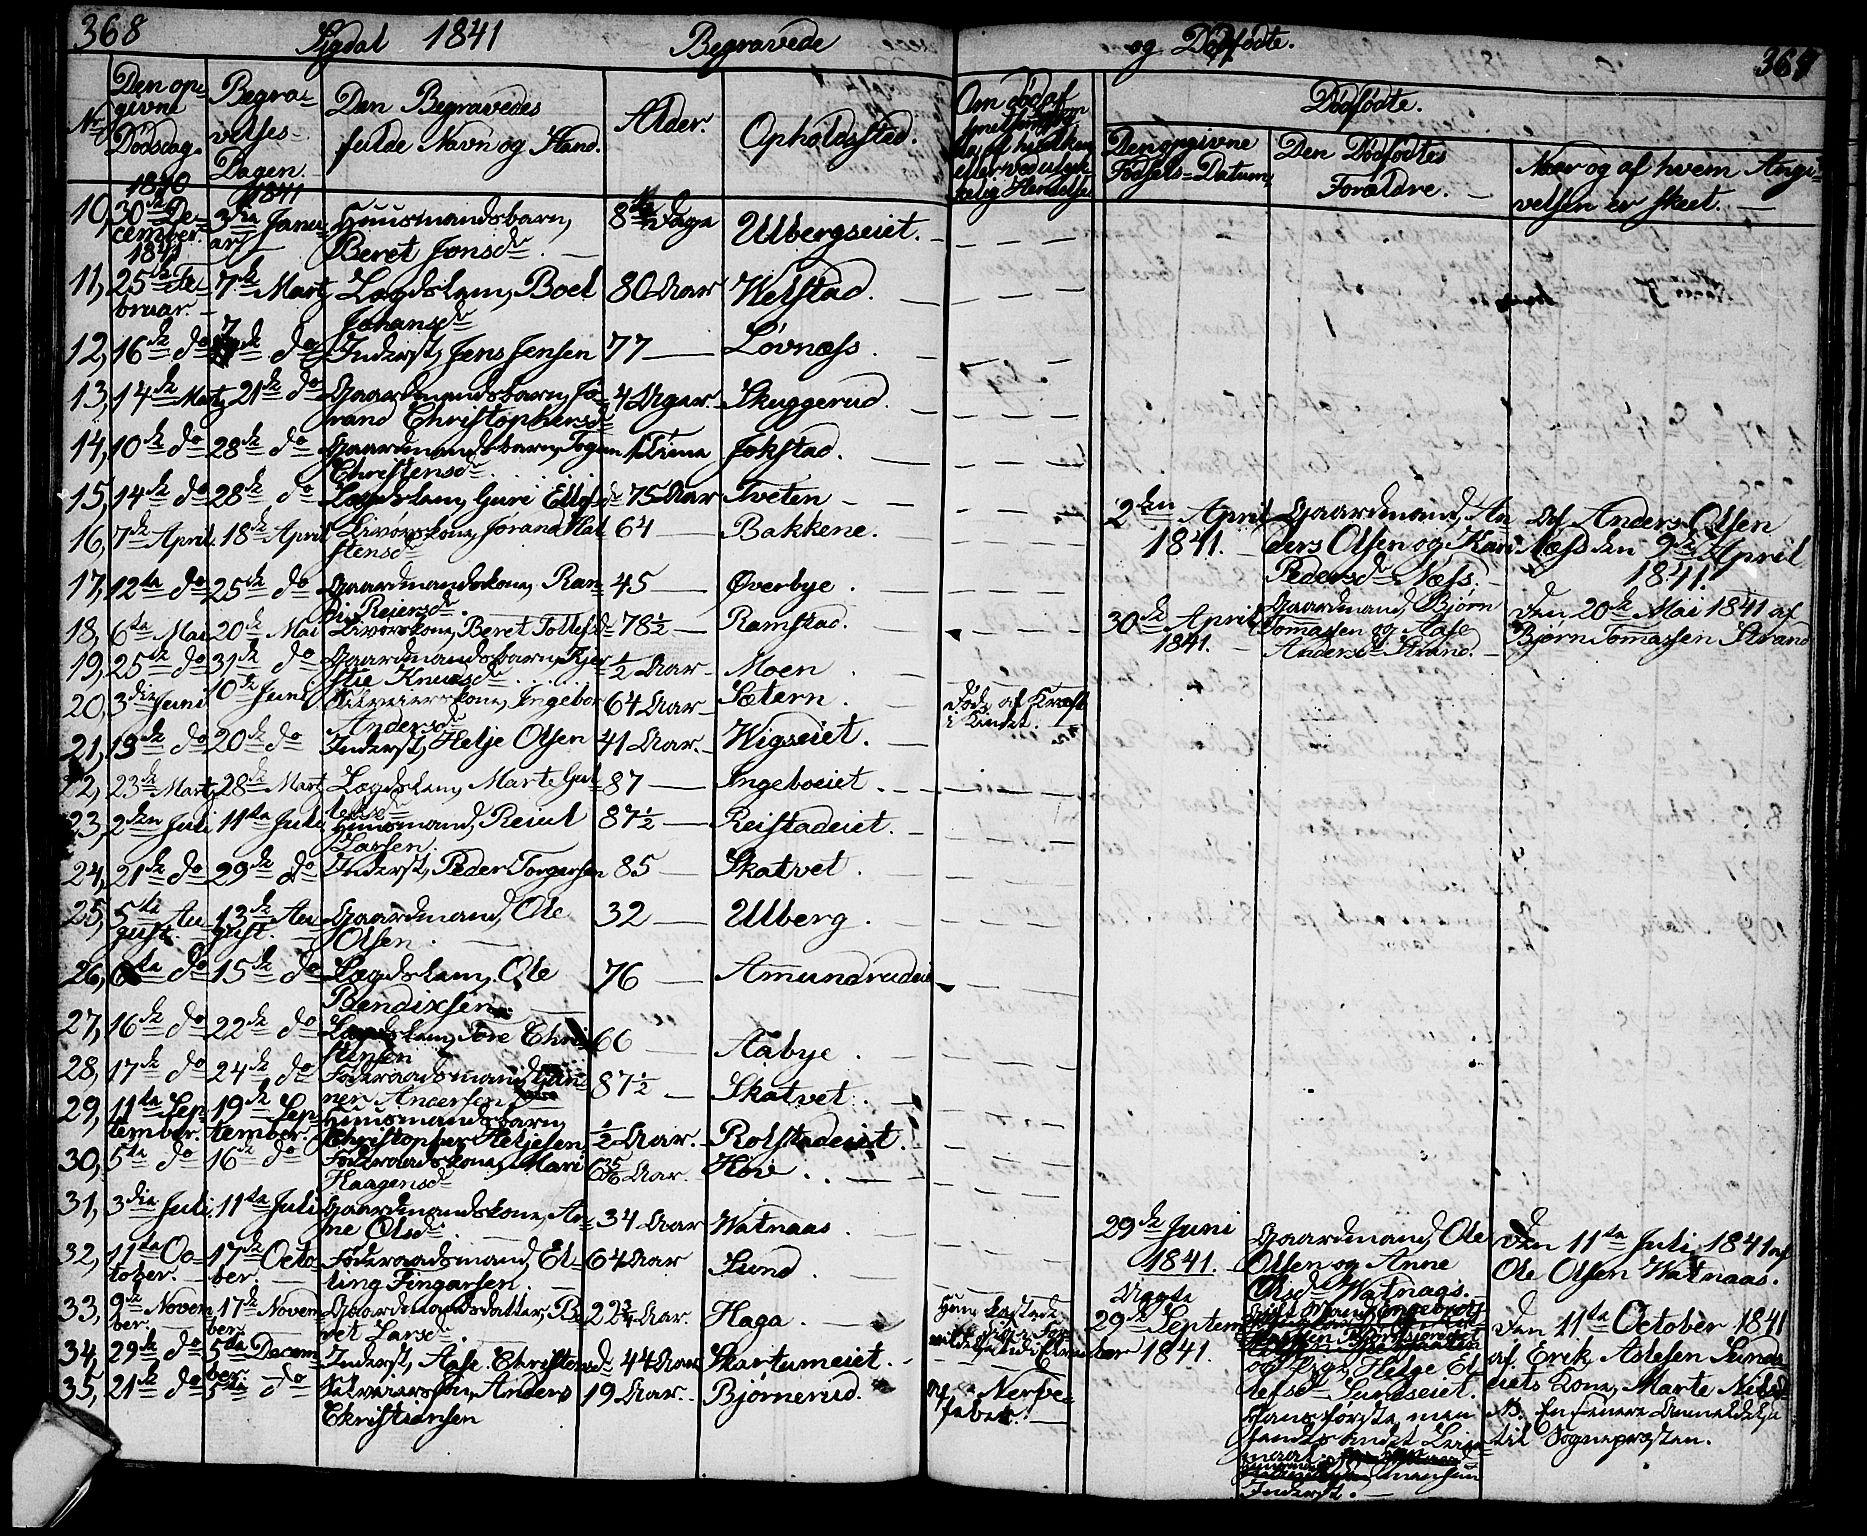 368 Sigdal 1841 Begravede og Dødfødte. 369
No
Den opgivne Dødsdag.
Begravelses-Dagen.
Den Begravedes fulde Navn og Stand.
Alder.
Opholdsstad.
Om død af
Dødfødte.
Den opgivne Fødsels-Datum,
Den Dødfødtes Forældre.
Naar og af hvem Angivelsen er skeet.
1840 1841
10, 30te December. 3die Januar Huusmandsbarn, Beret Jonsdr. 8te Dage Ulbergseiet.
1841
11, 25de Februar. 7de Marts Lægdslem, Boel Johansdr 80 Aar Welstad.
12, 16de do 7de do Inderst, Jens Jensen 77 Løvnæss.
13, 14de Marts 21de do Gaardmandsbarn, Jørand Christophersdr 4 Uger. Skuggerud.
14, 10de do 28de do Gaardmandsbarn, Christensdr. 1 Time Jokstad.
15, 14de do 28de do Lægdslem, Guri Ellefsdr 75 Aar Tveten
16, 7de April 18de April Jorand Halstensdr 64 Bakkene.
17, 12te do 25de do Gaardmandskone, Randi Reiersdr. 45 Øverbye.
18, 6te Mai 20de Mai Beret Tollefsdr 78½ Ramstad.
19, 25de do 31de do Gaardmandsbarn, Kjerstie Knudsdr ½ Aar Moen
20, 3die Juni Juni Ingebor Andersdr 64 Aar Sætern. Døde af Kræft i Kindet.
21, 13de do 20de do Inderst, Helje Olsen 41 Aar. Wigseiet.
22, 23de Marts 28de Marts Lægdslem, Marte Gul 87 Ingeboeiet.
23, 2den Juli 11te Juli Huusmand, Reiul Larsen. 87½ Reistadeiet.
24, 21de do 29de do Inderst, Peder Torgersen 85 Skatvet.
25, 5te August. 13de August. Gaardmand, Ole Olsen. 32 Ulberg.
26, 6te do 15de do Lægdslem, Ole Bendixsen 76 Amundrudeiet
27, 16de do 22de do Lægdslem, Tore Christensen 66 Aabye.
28, 17de do 24de do Føderaadsmand, Gunner Andersen 87½ Skatvet.
29, 11te September. 19de September. Huusmandsbarn Christopher Heljesen ½ Aar. Rolstadeiet.
30, 5te do 16de do Føderaadskone, Mari Haagensdr Aar. Hov.
31, 3die Juli, 11te Juli Gaardmandskone, Anne Olsdr. 34 Aar Watnaas
32, 11te October. 17de October. Føderaadsmand, Elling Fingarsen. 64 Aar Lund.
33, 9de November. 17de November Gaardmandsdatter, Beret Larsdr. 22¾ Aar. Haga. Hun kastede
34, 29de do 5te December. Inderst, Aase Christensdr 44 Aar Skartumeiet.
35, 21de do 5te do Anders Christiansen 19 Aar. Bjørnerud. Af Nerfefeber.
2den April 1841. Gaardmand, Anders Olsen og Kari Pedersdr Næss. Af Anders Olsen Næss den 9de April 1841.
30de April 1841. Gaardmand Bjørn Tomassen og Aase Andersdr Strand. Den 20de Mai 1841 af Bjørn Tomassen Strand
29de Juni 1841. Gaardmand, Ole Olsen og Anne Olsdr Watnaas. Den 11te Juli 1841 af Ole Olsen Watnaas.
Uægte
29de September 1841. og Pige Helge Ellefsdr Lundseiet. Hans første, men hendes andet Leiermaal. Inderst.
Den 11te October 1841 af Erik Aslesen Lundseiets Kone, Marte Nilsdr
NB. En senere Anmeldelse til Sognepræsten.